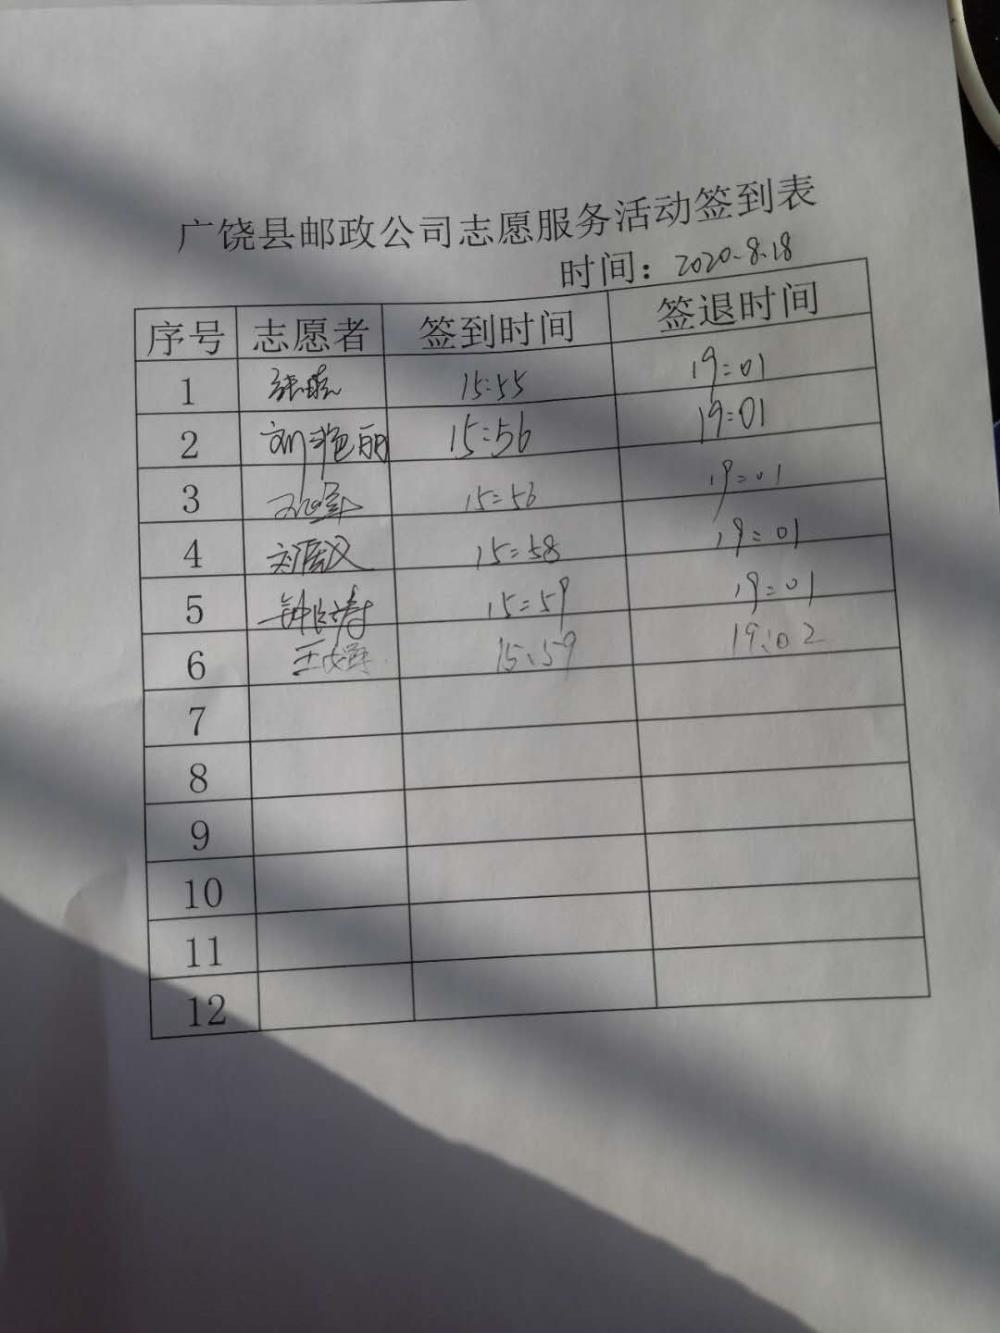 广饶县邮政公司志愿服务活动签到表
时间：2020.8.18
序号 志愿者 签到时间 签退时间
1 张晓 15:55 19:01
2 刘艳丽 15:56 19:01
3 15:56 19:01
4 15:58 19:01
5 15:59 19:01
6 15:59 19:02
7
8
9
10
11
12